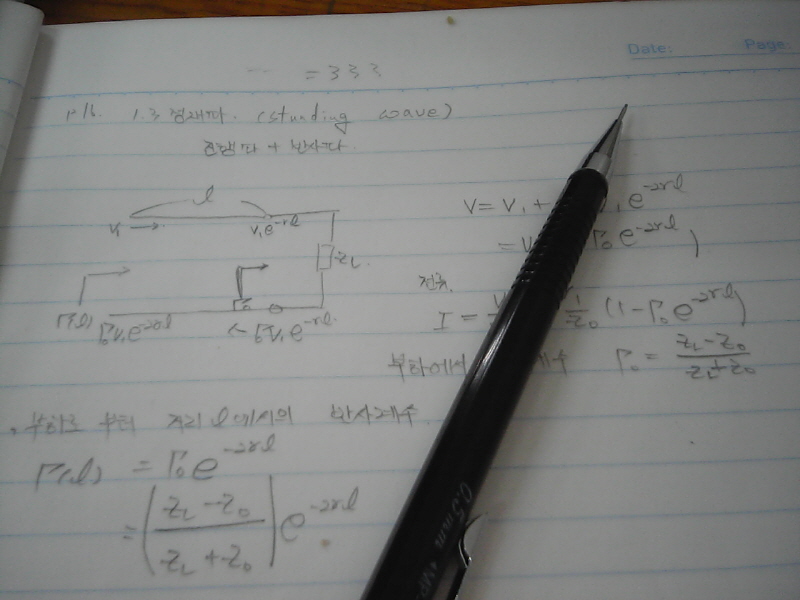 Date: Page:
= 333
P16. 1.3 정재파. (stunding wave)
진행파 + 반사파.
l
V₁ V₁e^-rl
Z_L.
Γ(l) Γ₀V₁e^-2rl Γ₀ ← Γ₀V₁e^-rl
V = V₁ + V₁e^-2rl
= Γ₀e^-2rl)
전류,
I = 1/Z₀ (1-Γ₀e^-2rl)
부하에서 계수 Γ₀ = (Z_L-Z₀)/(Z_L+Z₀)
부하로 부터 거리 l에서의 반사계수
Γ(l) = Γ₀e^-2rl
= (Z_L-Z₀ / Z_L+Z₀) e^-2rl
0.5mm